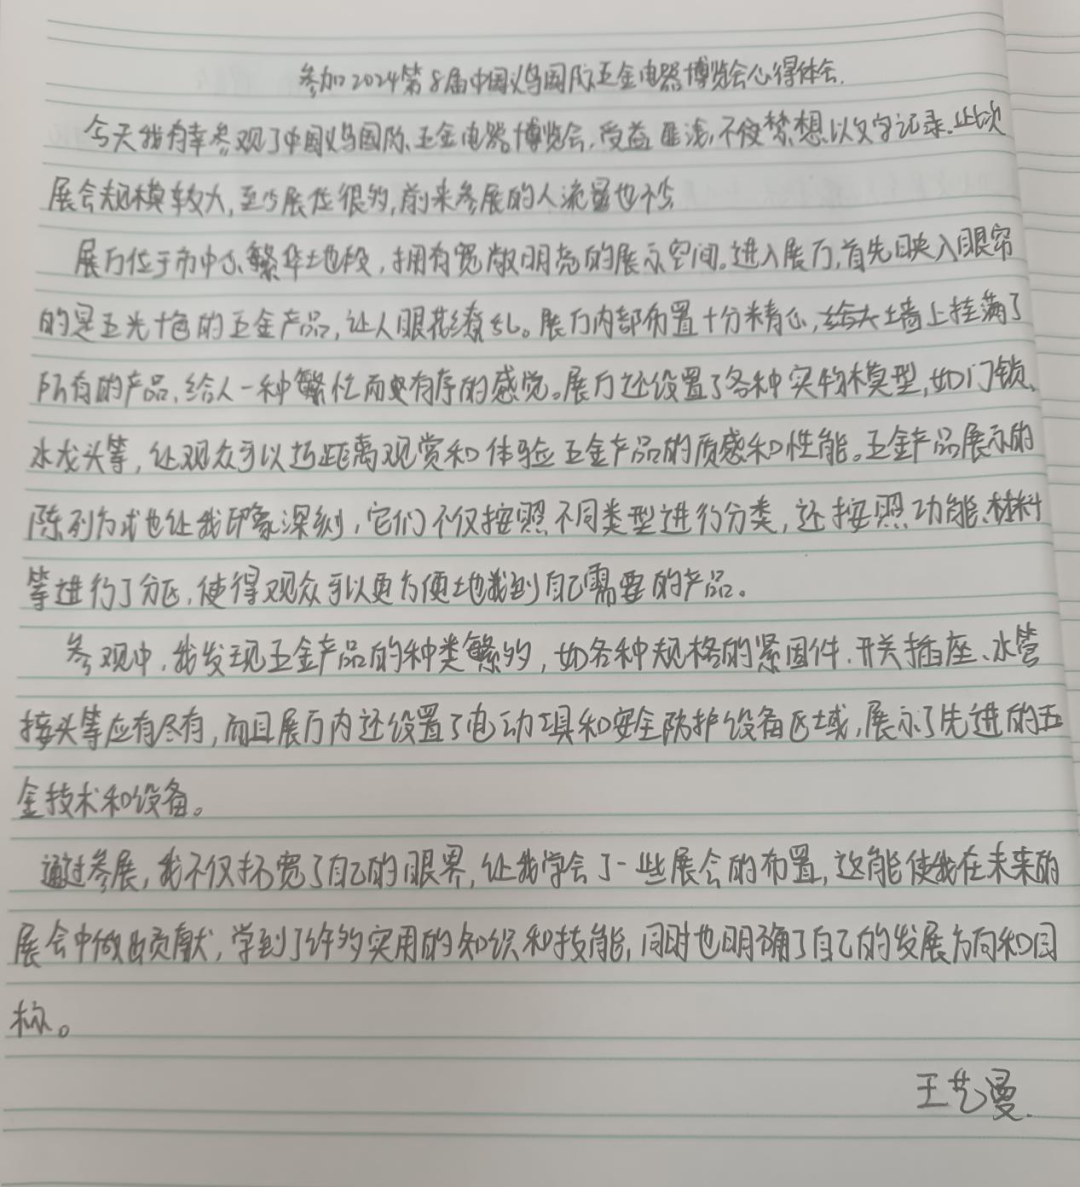 参加2024第8届中国义乌国际五金电器博览会心得体会.
今天我有幸参观了中国义乌国际五金电器博览会,受益匪浅,不假禁想以文字记录.此次
展会规模较大,至少展位很多,前来参展的人流量也不少
展厅位于市中心繁华地段,拥有宽敞明亮的展示空间。进入展厅,首先映入眼帘
的是五光十色的五金产品,让人眼花缭乱。展厅内部布置十分精心,墙上挂满了
所有的产品,给人一种繁忙而更有序的感觉。展厅还设置了各种实物模型,如门锁、
水龙头等,让观众可以近距离观赏和体验五金产品的质感和性能。五金产品展示的
陈列方式也让我印象深刻,它们不仅按照不同类型进行分类,还按照功能、材料
等进行了分区,使得观众可以更方便地找到自己需要的产品。
参观中,我发现五金产品的种类繁多,如各种规格的紧固件.开关插座、水管
接头等应有尽有,而且展厅内还设置了电动工具和安全防护设备区域,展示了先进的五
金技术和设备。
通过参展,我不仅拓宽了自己的眼界,让我学会了一些展会的布置,这能使我在未来的
展会中做出贡献,学到了许多实用的知识和技能,同时也明确了自己的发展方向和目
标。
王艺曼